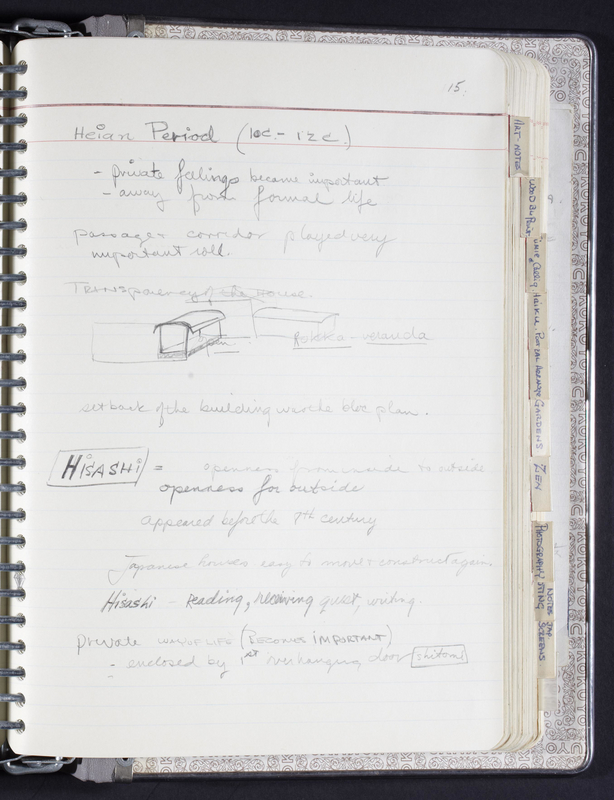 15.
Heian Period (10c. - 12c.)
- private feelings became important
- away from formal life
passage + corridor played very
important roll.
Transparency of the House.
Rokka - veranda
setback of the building was the bloc plan.
HISASHI = openness from inside to outside
openness for outside
appeared before the 7th century
Japanese houses easy to move + construct again
Hisashi - Reading, receiving guest, writing.
private WAY OF LIFE (BECOMES IMPORTANT)
- enclosed by 1st overhanging door shitomi
ART NOTES
HAIKU.
GARDENS
ZEN
PHOTOGRAPHY
NOTES JAP.
SCREENS
KOKUYO